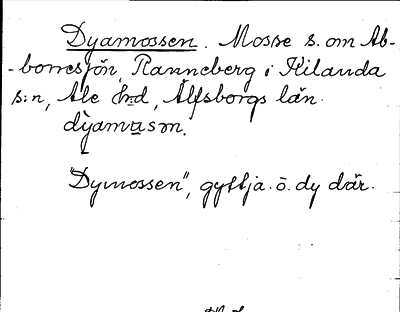 Dyamossen. Mosse s. om Ab-
-borresjön, Ranneberg i Kilanda
s:n, Ale hd, Älfsborgs län.
dyamasm.
"Dymossen", gyttja o. dy där.